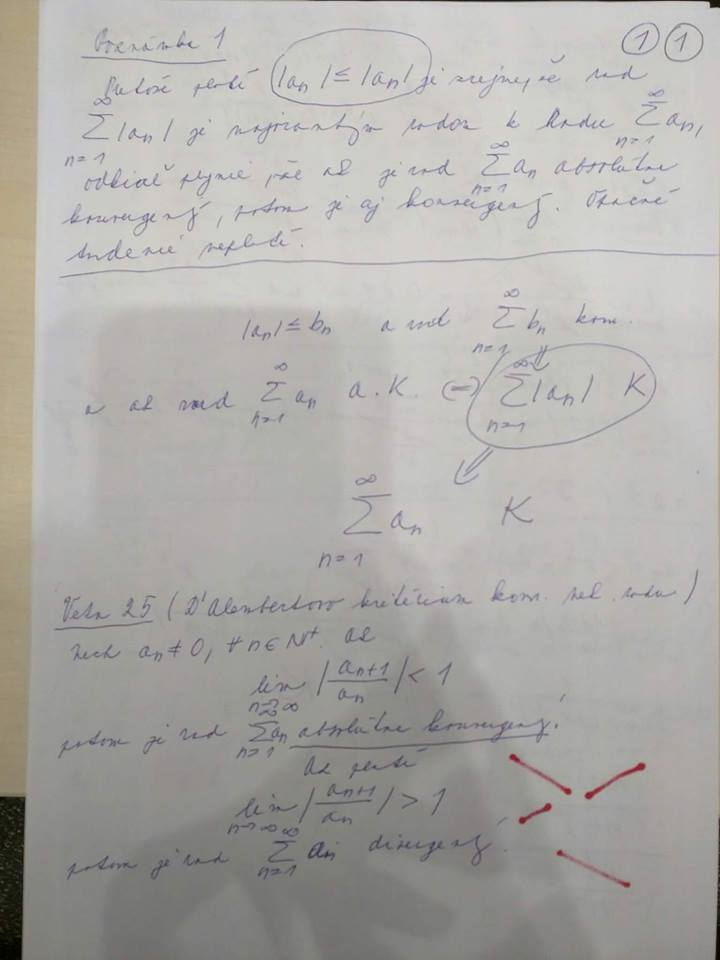 Poznámka 1
1 1
Pretože platí |an| ≤ |an| je zrejmé, že rad
∞ Σ n=1 |an| je majorantným radom k radu ∞ Σ n=1 an,
odkiaľ plynie, že ak je rad ∞ Σ n=1 an absolútne
konvergentný, potom je aj konvergentný. Opačné
tvrdenie neplatí.
|an| ≤ bn a rad ∞ Σ n=1 bn konv.
⇓
a ak rad ∞ Σ n=1 an A.K. (=) ∞ Σ n=1 |an| K
⇓
∞ Σ n=1 an K
Veta 25 (D'Alembertovo kritérium konv. nek. radu)
Nech an ≠ 0, ∀ n ∈ N⁺. Ak
lim n→∞ |an+1/an| < 1
potom je rad ∞ Σ n=1 an absolútne konvergentný.
Ak platí
lim n→∞ |an+1/an| > 1
potom je rad ∞ Σ n=1 an divergentný.